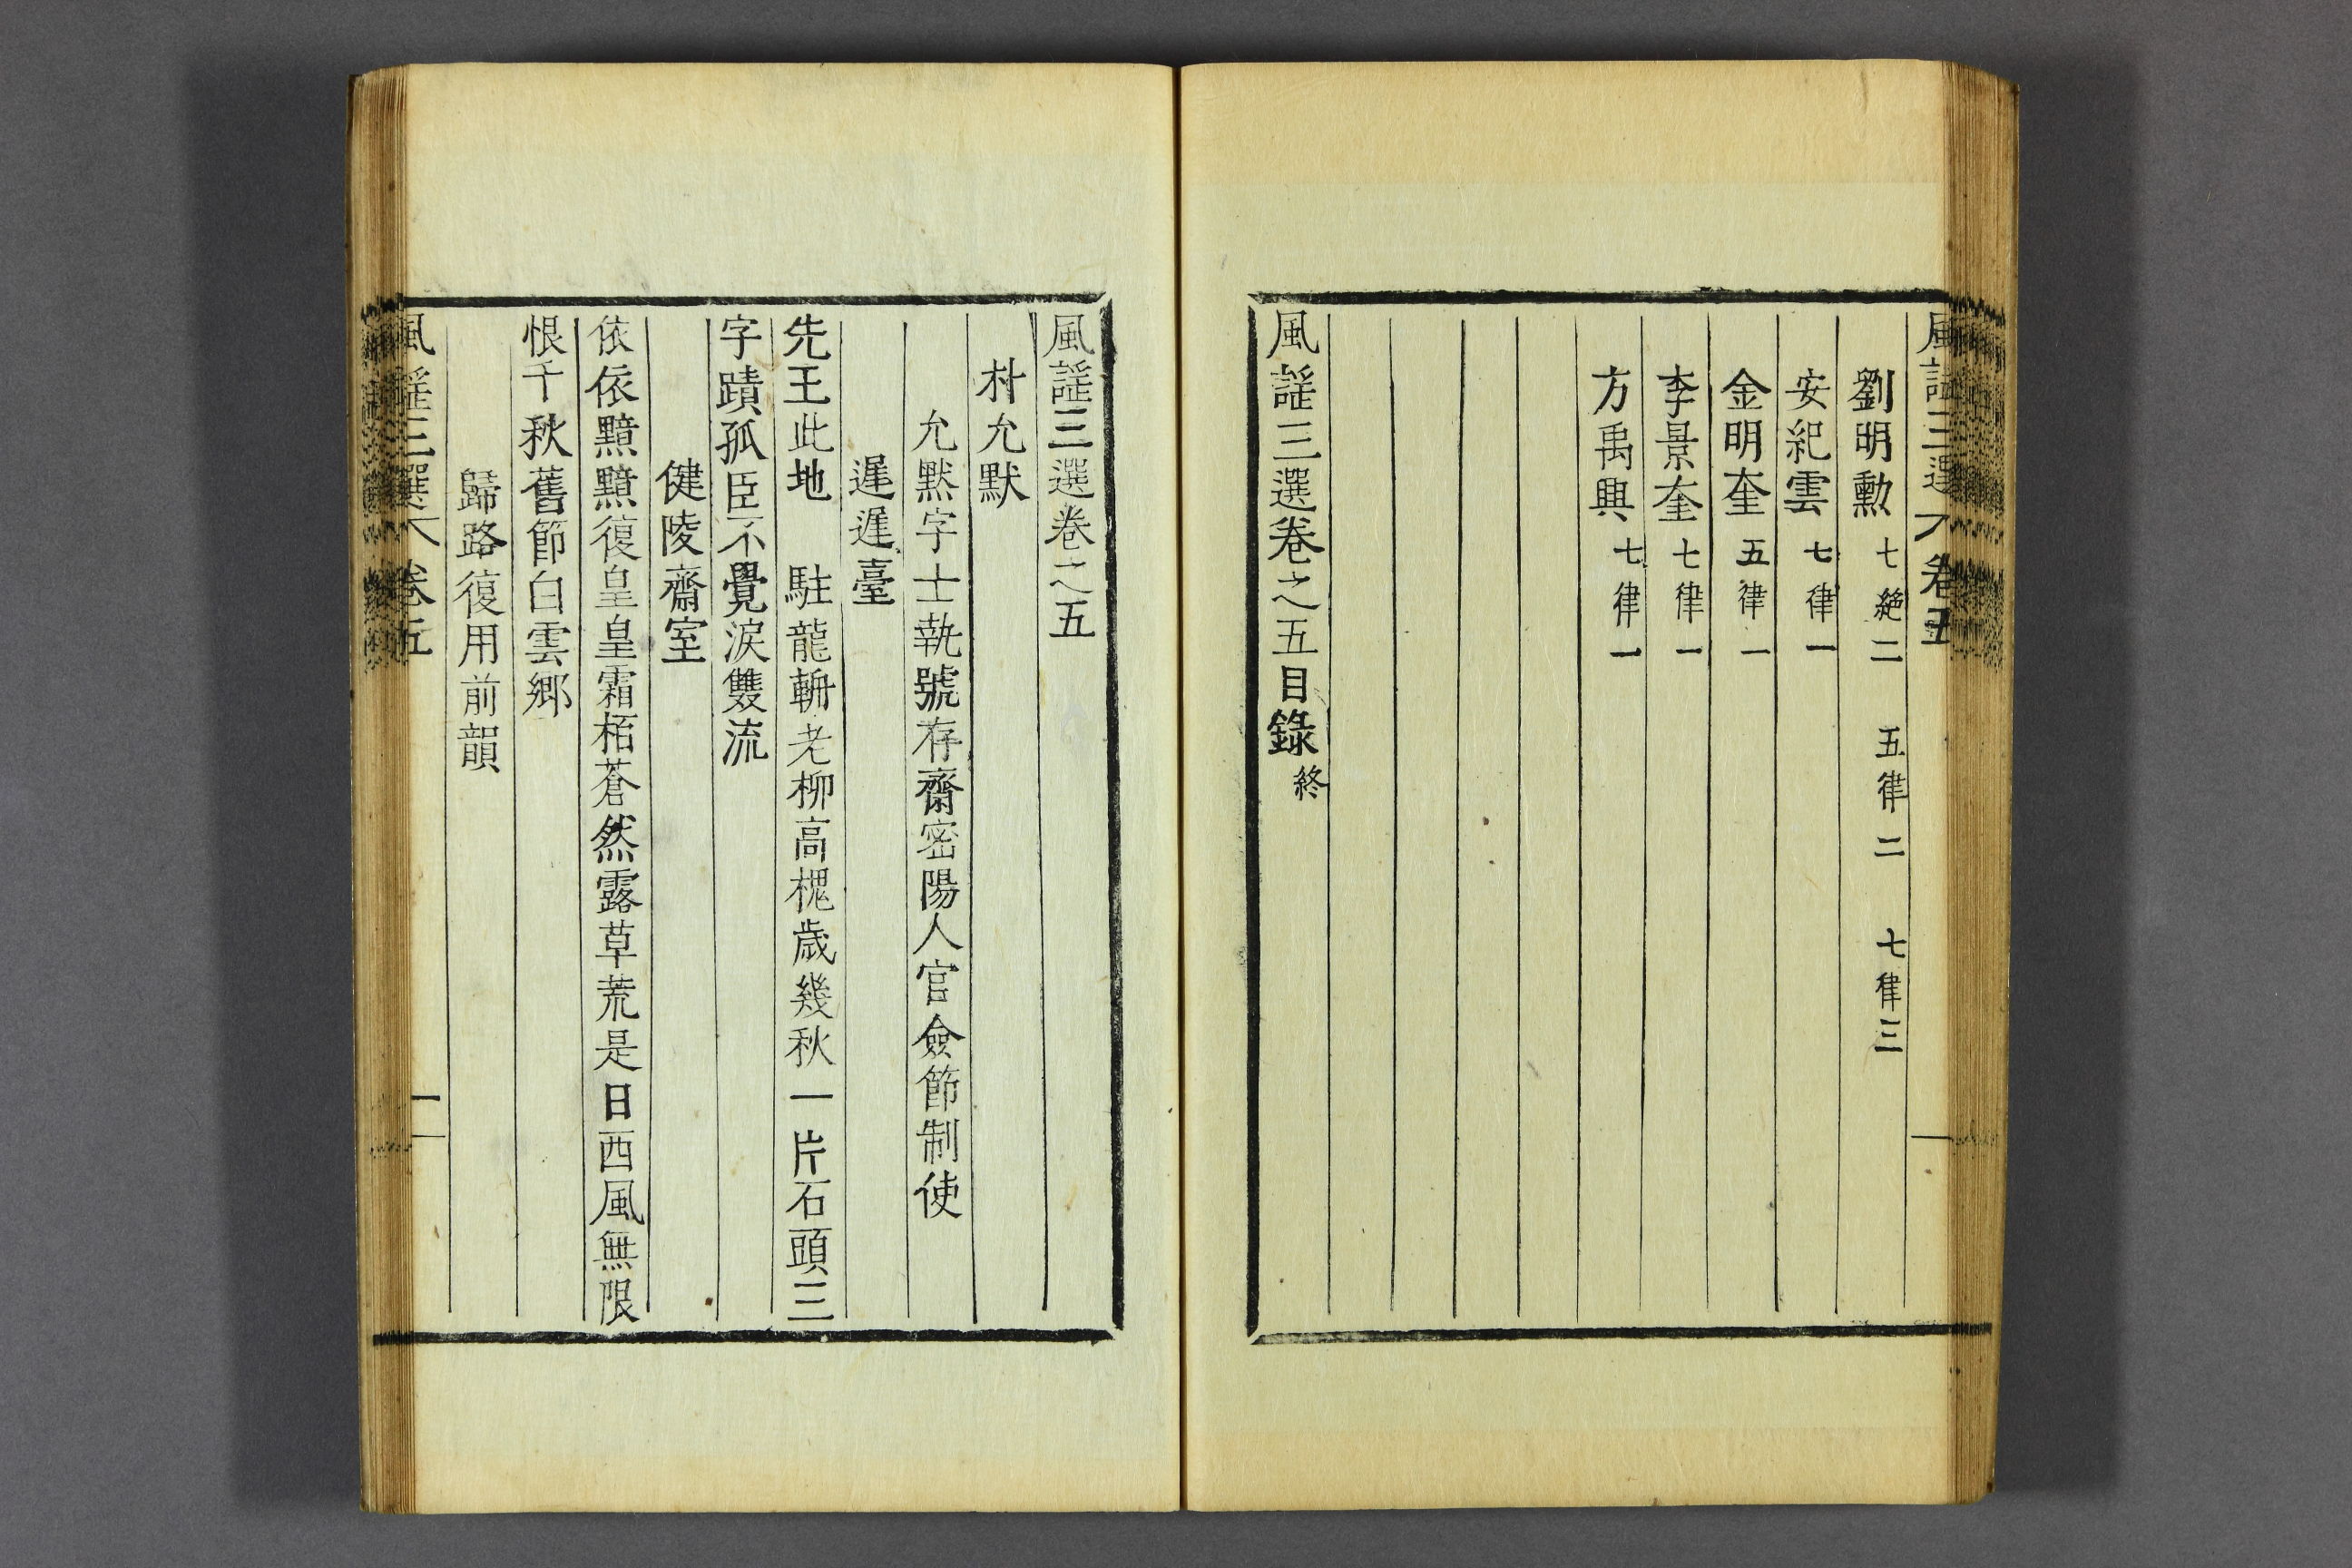 風謡三選 卷五
劉明勲 七絶二 五律二 七律三
安紀雲 七律一
金明奎 五律一
李景奎 七律一
方禹興 七律一
風謡三選卷之五目錄 終
風謡三選卷之五
朴允默
允黙字士執號存齋密陽人官僉節制使
遅遅臺
先王此地 駐龍輈老柳高槐歳幾秋一片石頭三
字蹟孤臣不覺淚雙流
健陵齋室
依依黯黯復皇皇霜栢蒼然露草荒是日西風無限
恨千秋舊節白雲郷
歸路復用前韻
風謡三選 卷五 一